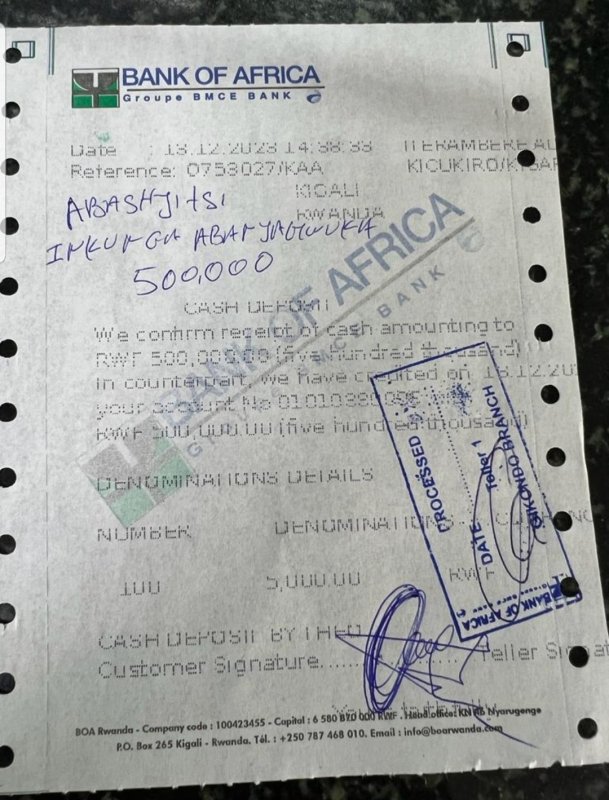 BANK OF AFRICA
Groupe BMCE BANK
Date : 13.12.2023 14:38:33 ITERAMBERE
Reference: 0753027/KAA KICUKIRO/KIGAL
KIGALI
RWANDA
500,000
CASH DEPOSIT
We confirm receipt of cash amounting to
RWF 500,000.00 (five hundred thousand)
In counterpart, we have credited on 13.12.202
your account No
RWF 500,000.00 (five hundred thousand)
DENOMINATIONS DETAILS
NUMBER DENOMINATIONS
100 5,000.00 RWF
CASH DEPOSIT BY THEO
Customer Signature Teller Signat
BANK OF AFRICA
BMCE BANK
PROCESSED
DATE Teller 1
GIKONDO BRANCH
BANK OF AFRICA
BOA Rwanda - Company code : 100423455 - Capital : 6 580 870 000 RWF . Head office: KN Nyarugenge
P.O. Box 265 Kigali - Rwanda. Tél. : +250 787 468 010. Email : info@boarwanda.com